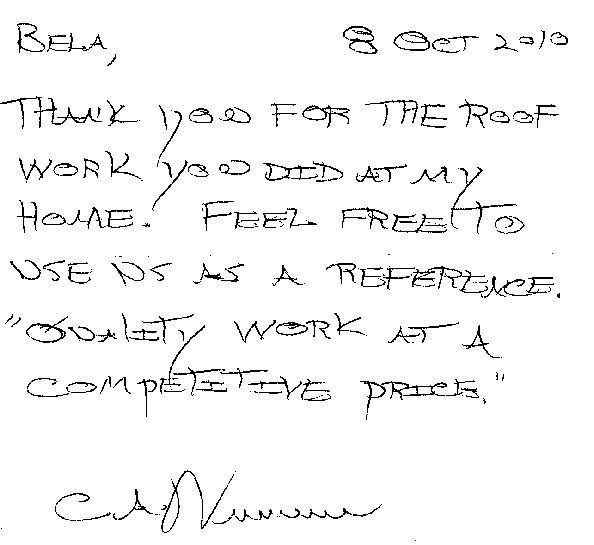 BELA,
8 OCT 2010
THANK YOU FOR THE ROOF
WORK YOU DID AT MY
HOME. FEEL FREE TO
USE US AS A REFERENCE.
"QUALITY WORK AT A
COMPETITIVE PRICE."
C.A.